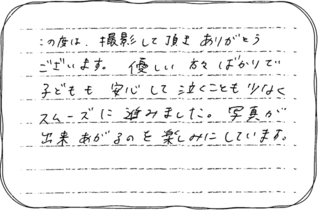 この度は、撮影して頂き ありがとう
ございます。 優しい 方々 ばかりで
子どもも 安心して 泣くことも 少なく
スムーズに 進みました。 写真が
出来 あがるのを 楽しみにしています。